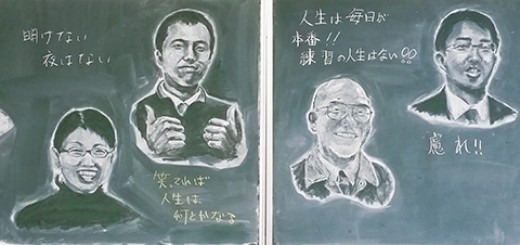 明けない
夜はない
笑ってれば
人生は
何とかなる
人生は毎日が
本番!!
練習の人生はない!!
慮れ!!